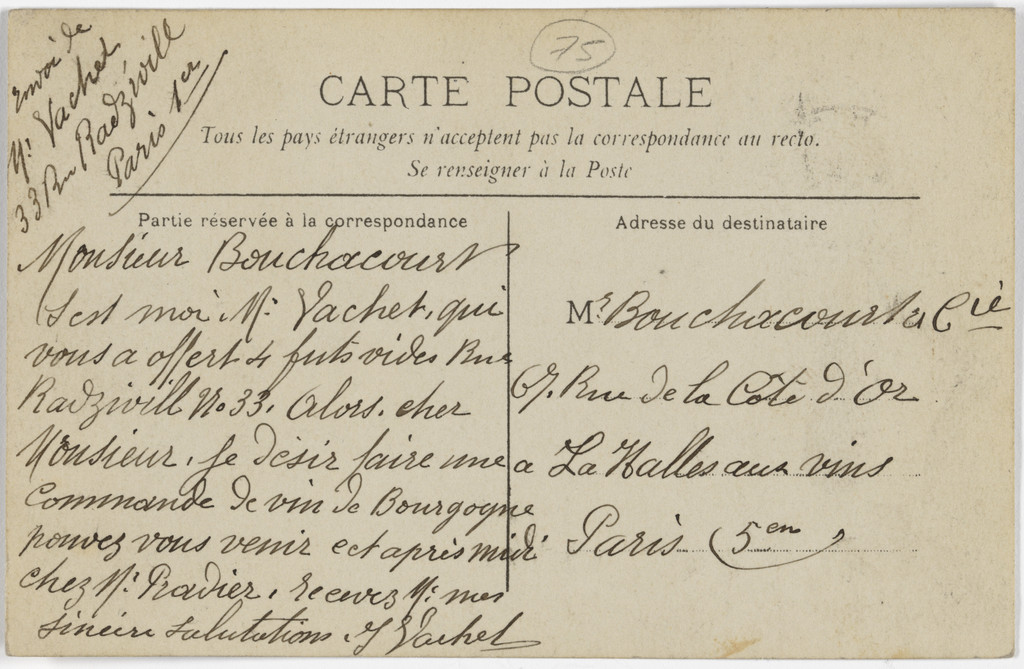 75
envoi de
Mr Vachet
33 Rue Radziwill
Paris 1er
CARTE POSTALE
Tous les pays étrangers n'acceptent pas la correspondance au recto.
Se renseigner à la Poste
Partie réservée à la correspondance
Monsieur Bouchacourt
Sest moi, Mr Vachet, qui
vous a offert 4 futs vides Rue
Radziwill No 33. Alors. cher
Monsieur, je désir faire une
Commande de vin de Bourgogne
pouvez vous venir cet après midi
chez Mr Pradier, recevez Mr mes
sincère salutations J Vachet
Adresse du destinataire
Mr Bouchacourt & Cie
67. Rue de la Côte d'Or
a La Halles aux vins
Paris (5en)